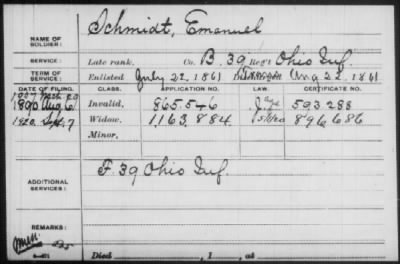 NAME OF SOLDIER: Schmidt, Emanuel
SERVICE: Late rank, Co. B, 39 Reg't Ohio Inf.
TERM OF SERVICE: Enlisted July 22, 1861 Aug 22, 1861
DATE OF FILING. CLASS. APPLICATION NO. LAW. CERTIFICATE NO.
1907
1890 Aug 6 Invalid, 865.546 593.288
1920. Sept. 7 Widow, 1163.884 896686
Minor,
ADDITIONAL SERVICES: F. 39 Ohio Inf.
REMARKS:
Died , 1 , at